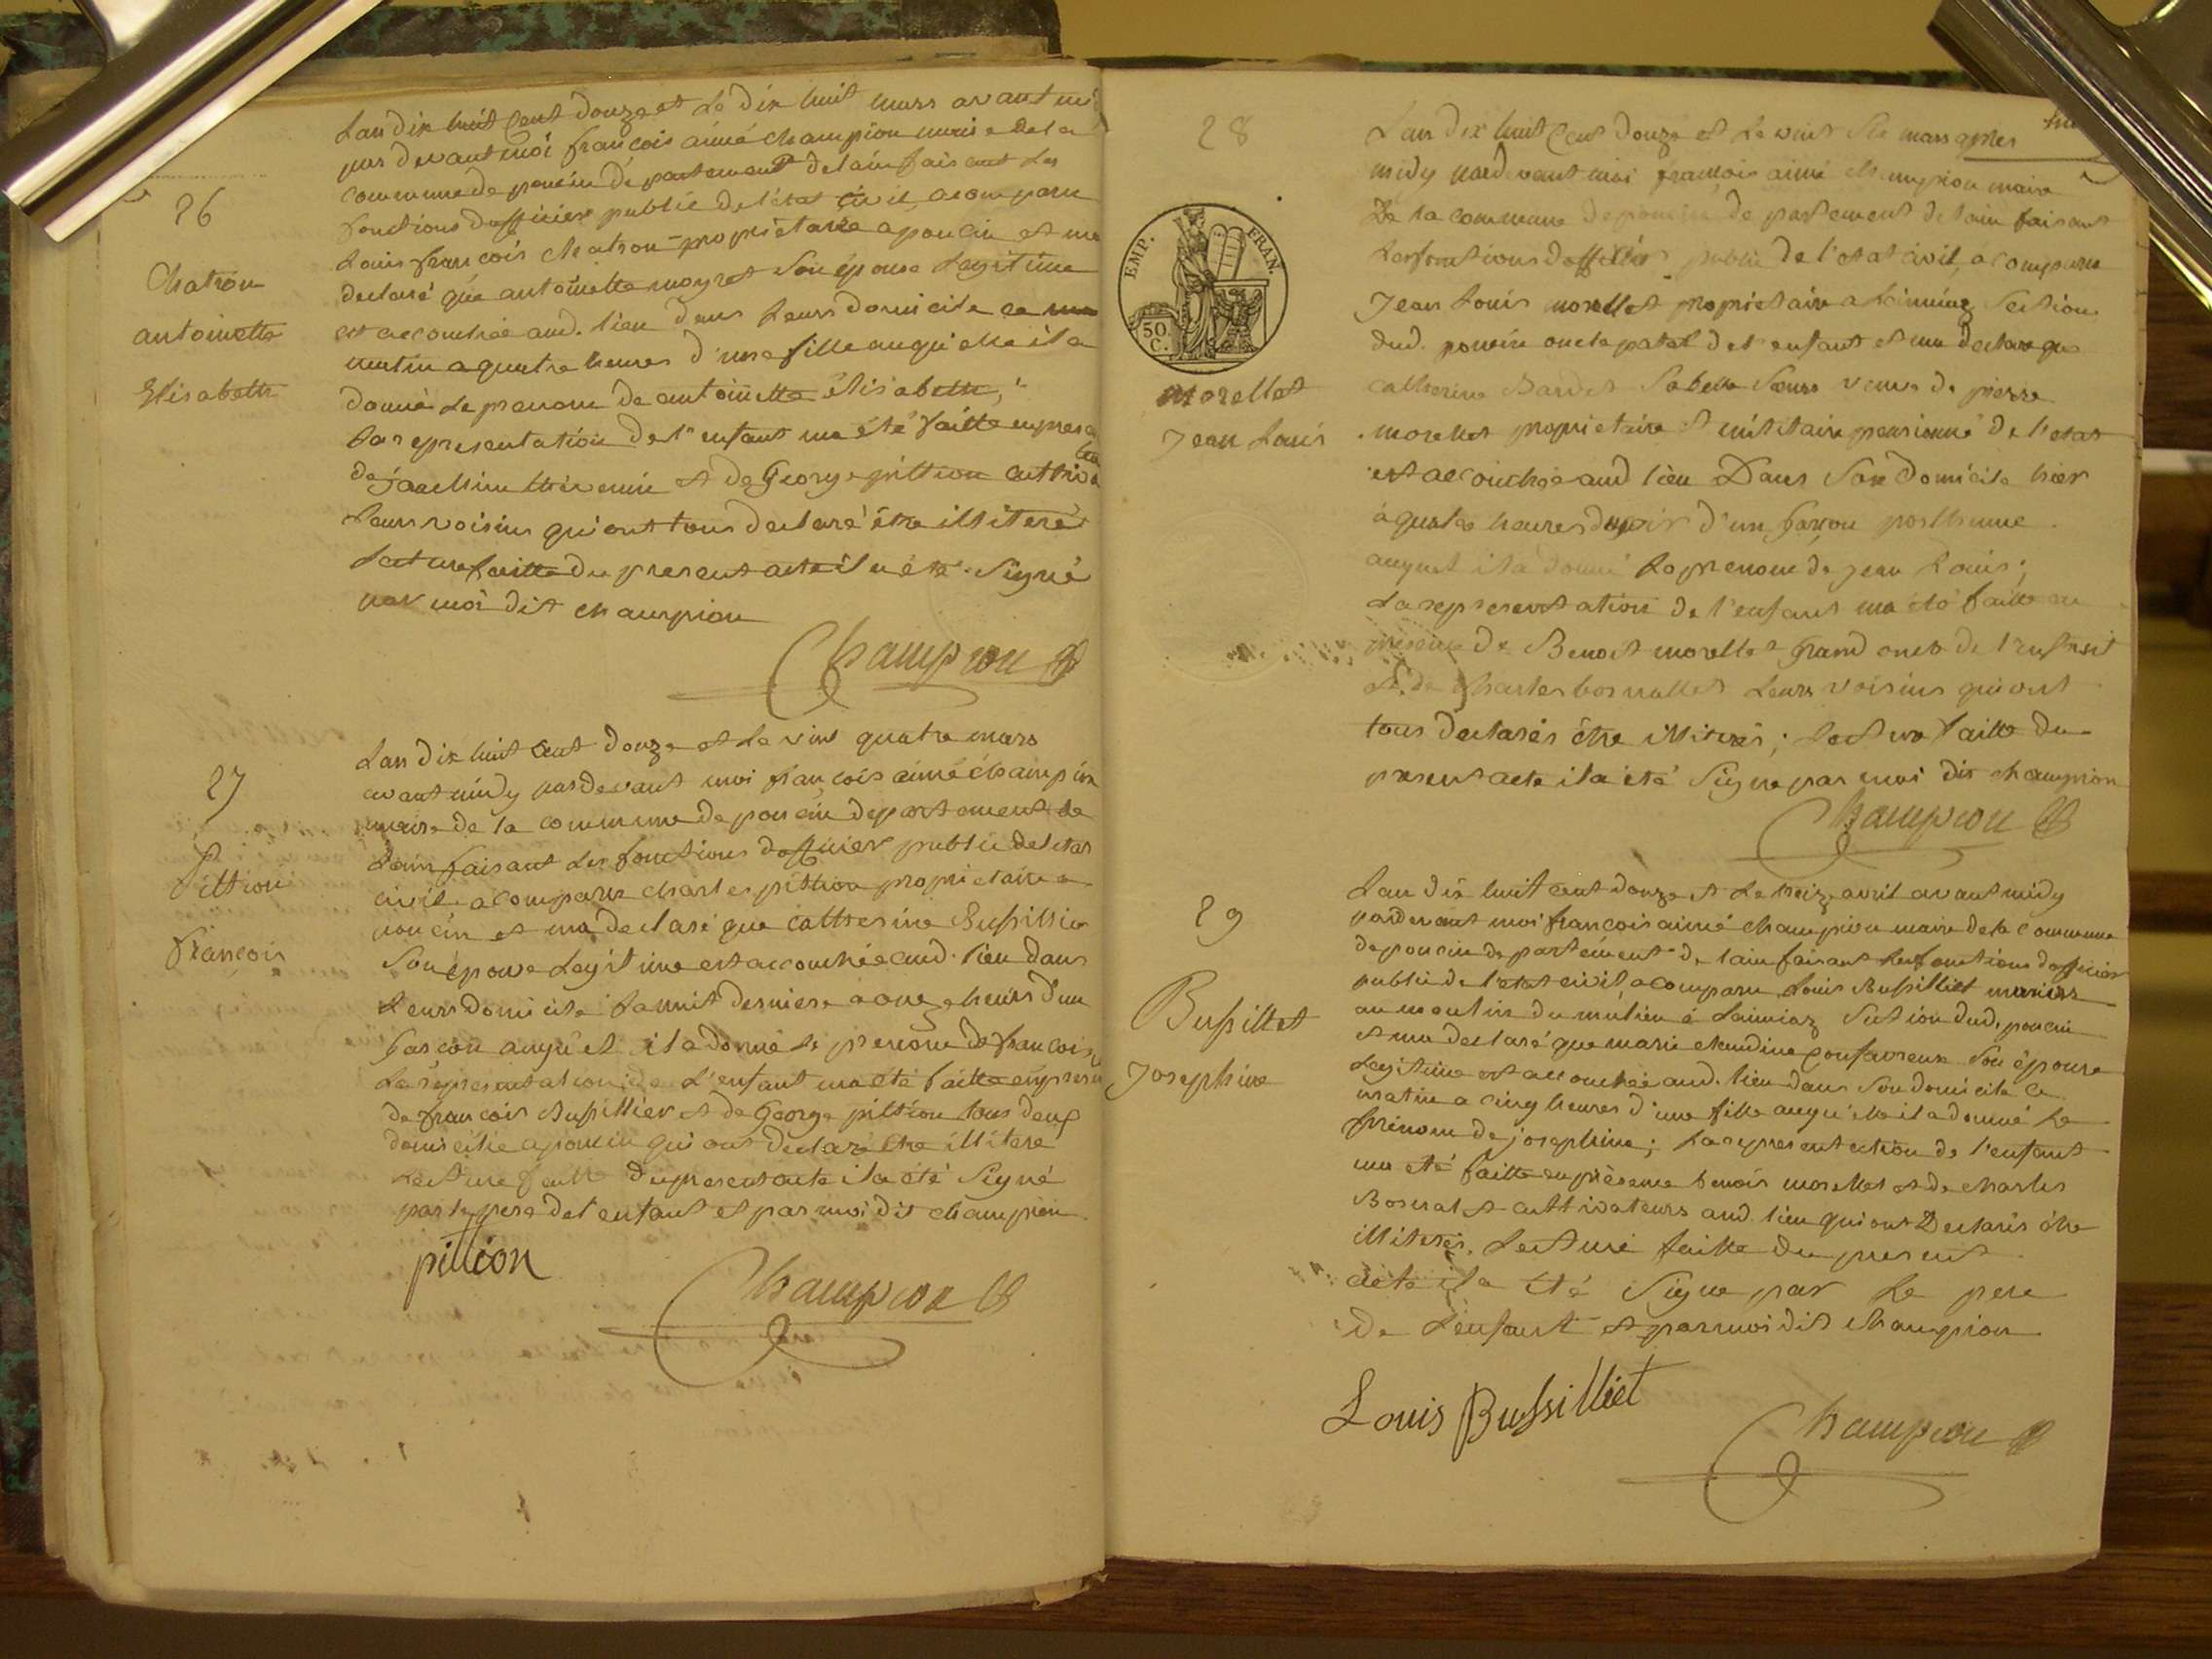 26
Chatron
antoinette
Elisabeth
Lan dix huit Cent douze et Le dix huit mars avant mi
par devant moi françois aimé champion maire de la
commune de poncin département de lain faisant Les
fonctions dofficier public de létat civil, acomparu
Louis françois chatron propriétaire a poncin et ma
declaré que antoinette moyret Son épouse Legitime
est accouchée aud. lieu dans Leurs domicile ce
matin a quatre heures d'une fille auquelle il a
donné Le prenom de antoinette élisabeth;
La representation de l'enfant ma été faitte en presen
de joachim thevenin et de George pittion cultiva
Leurs voisins qui ont tous declaré être illiteré
Lecture faitte du present acte il a été Signé
par moi dit champion
Champion
27
Pittion
françois
Lan dix huit cent douze et Le vint quatre mars
avant midy pardevant moi françois aimé champion
maire de la commune de poncin departement de
Lain faisant Les fonctions dofficier public de letat
civil acomparu charles pittion propriétaire a
poncin et ma declaré que catherine Bussillier
Son épouse Legitime est accouchée aud. lieu dans
Leurs domicile La nuit derniere a onze heures d'un
garcon auquel il a donné Le prenom de francois
La representation de L'enfant ma été faitte en presen
de francois Bussillier et de George pittion tous deux
domicilie a poncin qui ont declaré être illiteré
Lecture faitte du present acte il a été Signé
par le pere de l'enfant et par moi dit champion
pittion
Champion
28
EMP. FRAN.
50 C.
Morellet
Jean Louis
Lan dix huit Cent douze et Le vint Six mars apres
midy pardevant moi françois aimé champion maire
De la commune de poncin departement de lain faisant
Les fonctions dofficier public de l'etat civil, acomparu
Jean Louis morellet propriétaire a Section
dud. poncin oncle patel de l'enfant et ma declaré que
catherine Bardet Sa belle Sœur veuve de pierre
morellet propriétaire et militaire pensionné de l'etat
est accouchée aud lieu Dans Son Domicile hier
à quatre heures du soir d'un garcon posthume
auquel il a donné Le prenom de jean Louis;
La representation de l'enfant ma été faitte en
presence de Benoit morellet Grand oncle de l'enfant
et de Charles Leurs voisins qui ont
tous declarés être illiterés; Lecture faitte du
present acte il a été Signé par moi dit champion
Champion
29
Bussillet
Josephine
Lan dix huit cent douze et Le treize avril avant midy
pardevant moi françois aimé champion maire de la commune
de poncin departement de lain faisant Les fonctions dofficier
public de l'etat civil, acomparu Louis Bussilliet
au moulin du milieu à Section dud. poncin
et ma declaré que marie claudine Son épouse
Legitime est accouchée aud. lieu dans Son domicile ce
matin a cinq heures d'une fille auquelle il a donné Le
prénom de josephine; La representation de l'enfant
ma été faitte en présence benoit morellet et de charles
cultivateurs aud. lieu qui ont Declarés être
illiterés. Lecture faitte du present
acte il a été Signé par Le pere
de L'enfant et par moi dit Champion
Louis Bussilliet
Champion